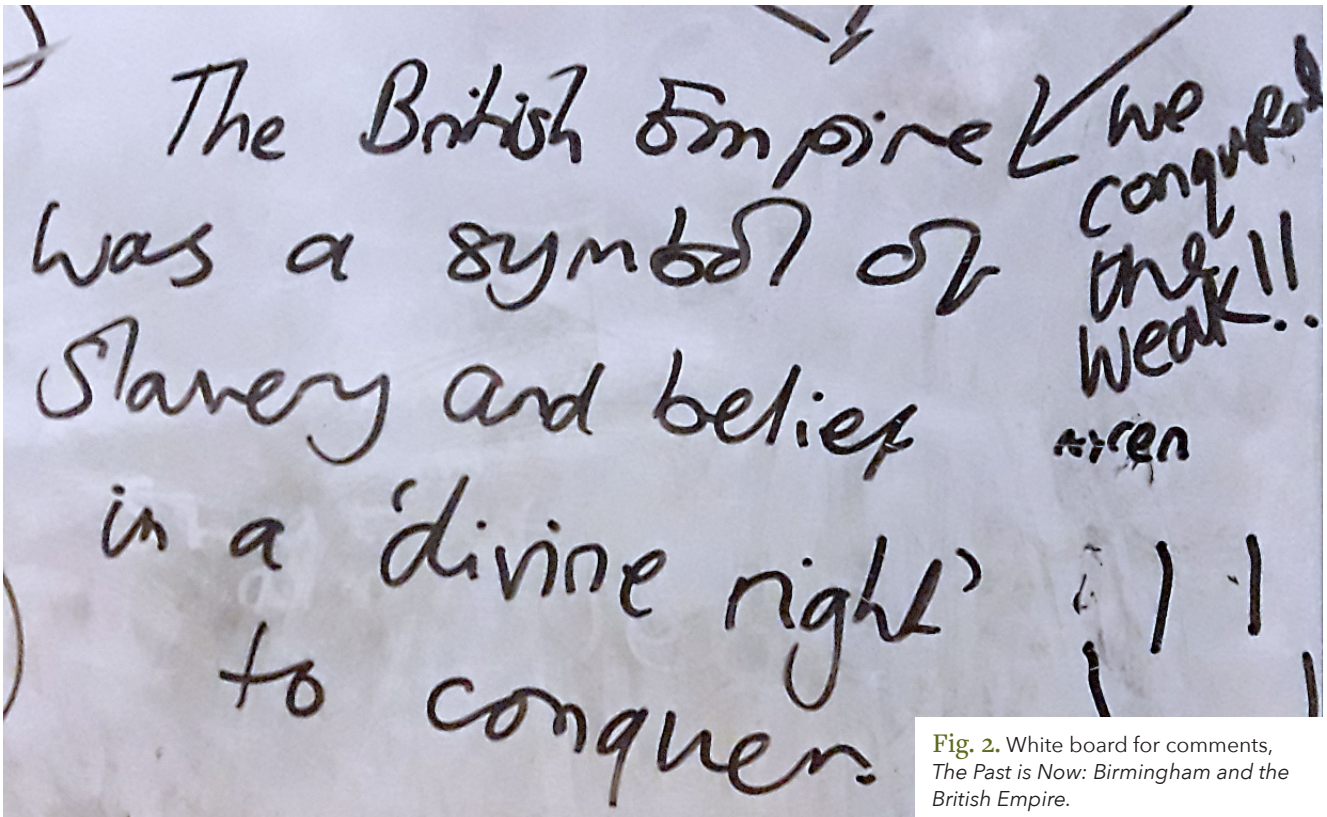 The British Empire
was a symbol of
Slavery and belief
in a 'divine right'
to conquer.
we
conquered
the
weak!!
Fig. 2. White board for comments,
The Past is Now: Birmingham and the
British Empire.